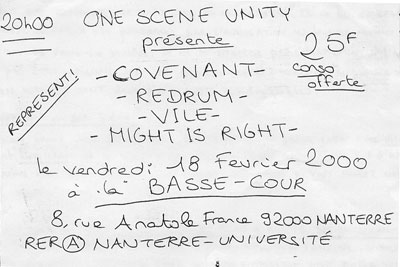 20h00 ONE SCENE UNITY
présente
25F
conso
offerte
REPRESENT!
-COVENANT-
-REDRUM-
-VILE-
-MIGHT IS RIGHT-
le vendredi 18 Fevrier 2000
à la BASSE-COUR
8, rue Anatole France 92000 NANTERRE
RER A NANTERRE-UNIVERSITÉ